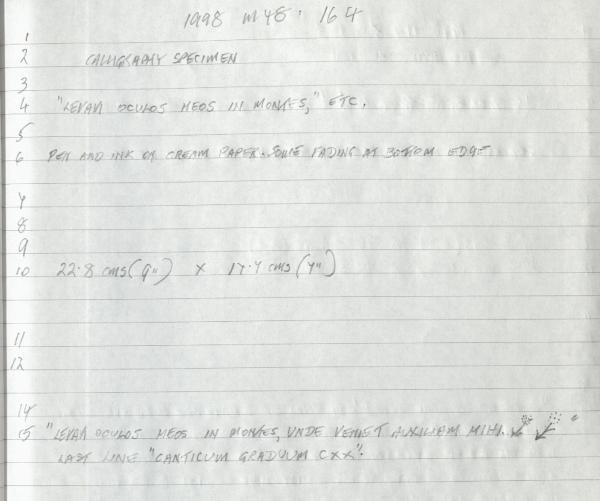 1998 M 48. 164
1
2 CALLIGRAPHY SPECIMEN
3
4 "LEVAVI OCULOS MEOS IN MONTES," ETC.
5
6 PEN AND INK ON CREAM PAPER. SOME FADING AT BOTTOM EDGE
7
8
9
10 22.8 cms (9") x 17.7 cms (7")
11
12
14
15 "LEVAVI OCULOS MEOS IN MONTES, UNDE VENIET AUXILIUM MIHI. "
LAST LINE "CANTICUM GRADUUM CXX".